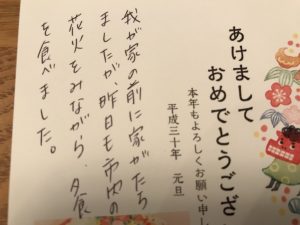 あけまして
おめでとうござ
本年もよろしくお願い申し
平成三十年 元旦
我が家の前に家がたち
ましたが、昨日も市内の
花火をみながら、夕食
を食べました。